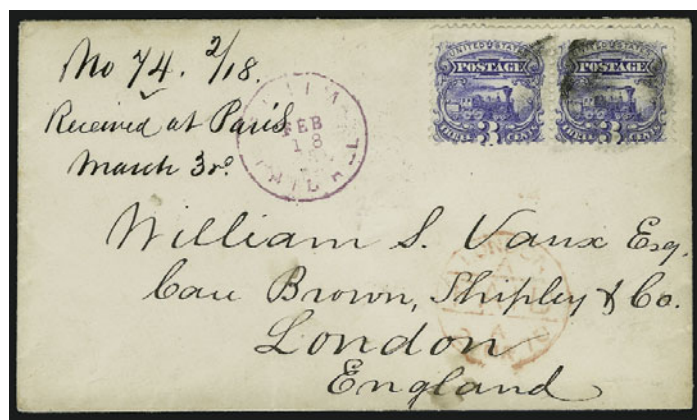 No 74. 2/18.
Received at Paris
March 3rd
FEB
18
UNITED STATES
POSTAGE
THREE 3 CENTS
UNITED STATES
POSTAGE
THREE 3 CENTS
William S. Vaux Esq.
Care Brown, Shipley & Co.
London
England
LONDON